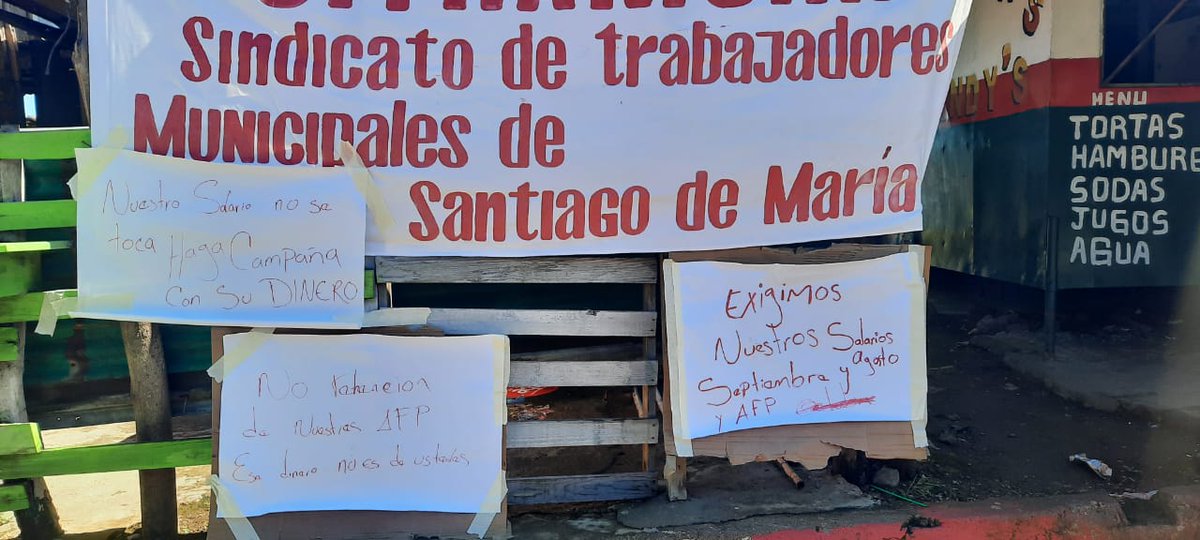 Sindicato de trabajadores
Municipales de
Santiago de María
Nuestro Salario no se
toca Haga Campaña
Con Su DINERO
No
de Nuestras AFP
Ese dinero no es de ustedes
Exigimos
Nuestros Salarios
agosto
Septiambre y
y AFP
NDY'S
MENU
TORTAS
HAMBURE
SODAS
JUGOS
AGUA